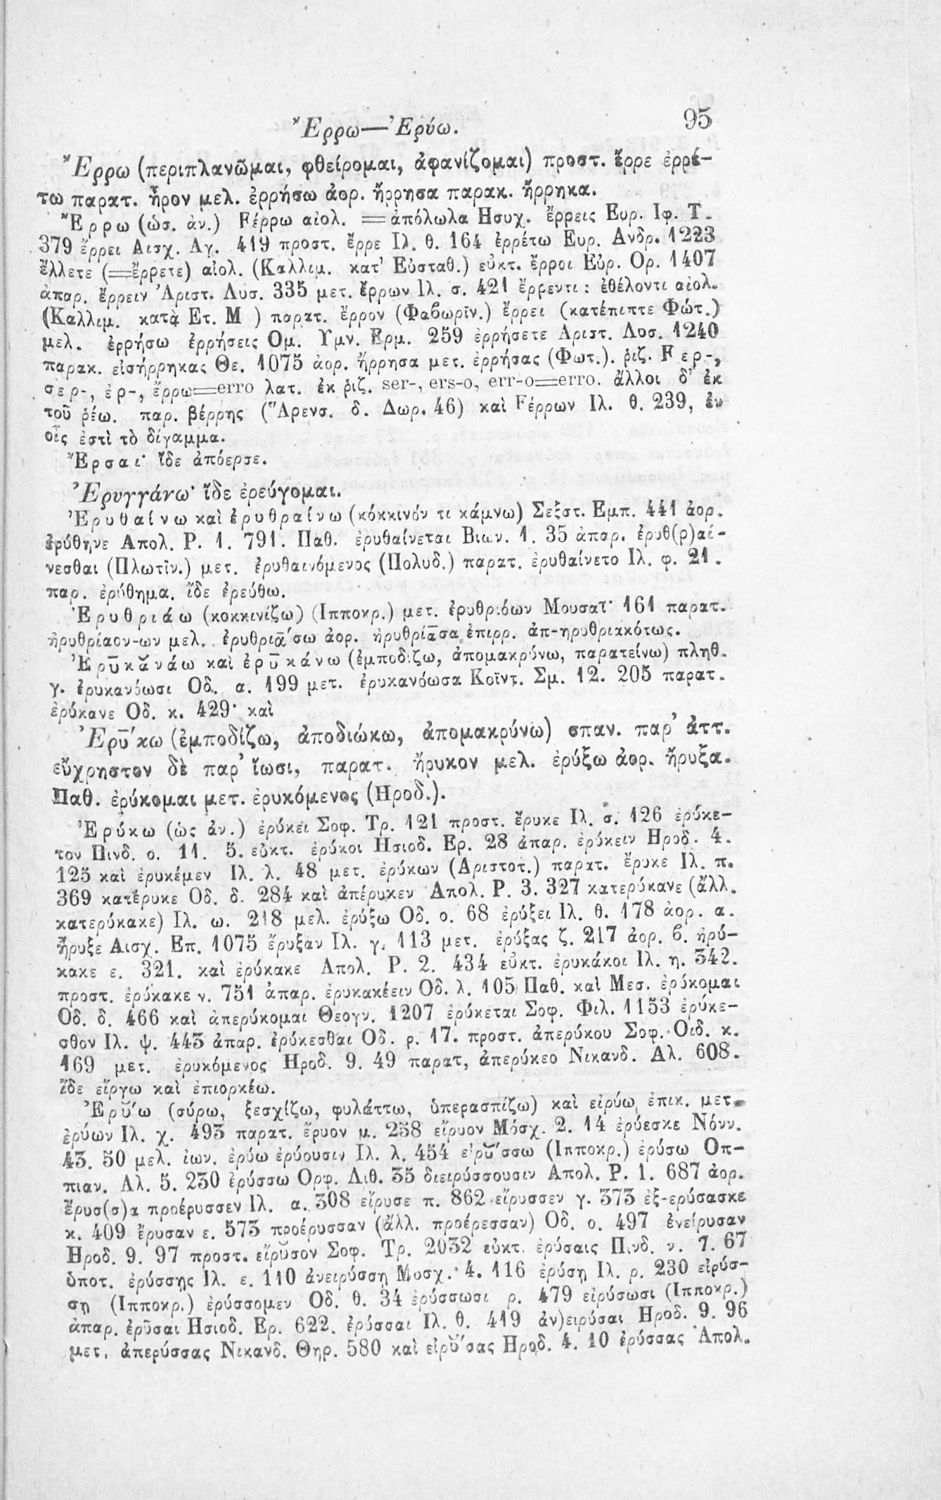 Ἔρρω—Ἐρύω. 95
Ἔρρω (περιπλανῶμαι, φθείρομαι, ἀφανίζομαι) προστ. ἔρρε ἐρρέ-
τω παρατ. ἦρον μελ. ἐρρήσω ἀορ. ἤρρησα παρακ. ἤρρηκα.
Ἔρρω (ὡσ. ἀν.) Fέρρω αἰολ. =ἀπόλωλα Ησυχ. ἔρρεις Ευρ. Ιφ. Τ.
379 ἔρρει Αισχ. Αγ. 419 προστ. ἔρρε Ιλ. θ. 164 ἐρρέτω Ευρ. Ανδρ. 1223
ἔλλετε (=ἔρρετε) αἰολ. (Καλλιμ. κατ' Εὐσταθ.) εὐκτ. ἔρροι Εὐρ. Ορ. 1407
ἀπαρ. ἔρρειν Ἀριστ. Λυσ. 335 μετ. ἔρρων Ιλ. σ. 421 ἔρρεντι : ἐθέλοντι αἰολ.
(Καλλιμ. κατὰ Ετ. Μ ) παρατ. ἔρρον (Φαβωρῖν.) ἔρρει (κατέπιπτε Φώτ.)
μελ. ἐρρήσω ἐρρήσεις Ομ. Υμν. Ερμ. 259 ἐρρήσετε Αριστ. Λυσ. 1240
παρακ. εἰσήρρηκας Θε. 1075 ἀορ. ἤρρησα μετ. ἐρρήσας (Φωτ.). ῥιζ. Fερ-,
σερ-, ἐρ-, ἔρρω=erro λατ. ἐκ ῥιζ. ser-, ers-o, err-o=erro. ἄλλοι δ' ἐκ
τοῦ ῥέω. παρ. βέρρης (Ἄρενσ. δ. Δωρ. 46) καὶ Fέρρων Ιλ. θ. 239, ἐν
οἷς ἐστὶ τὸ δίγαμμα.
Ἔρσαι· ἴδε ἀπόερσε.
Ἐρυγγάνω· ἴδε ἐρεύγομαι.
Ἐρυθαίνω καὶ ἐρυθραίνω (κόκκινόν τι κάμνω) Σεξστ. Εμπ. 441 ἀορ.
ἐρύθηνε Απολ. Ρ. 1. 791. Παθ. ἐρυθαίνεται Βιων. 1. 35 ἀπαρ. ἐρυθ(ρ)αί-
νεσθαι (Πλωτῖν.) μετ. ἐρυθαινόμενος (Πολυδ.) παρατ. ἐρυθαίνετο Ιλ. φ. 21.
παρ. ἐρύθημα. ἴδε ἐρεύθω.
Ἐρυθριάω (κοκκινίζω) (Ιπποκρ.) μετ. ἐρυθριόων Μουσαῖ· 161 παρατ.
ἠρυθρίαον-ων μελ. ἐρυθριᾱ́σω ἀορ. ἠρυθρίᾱσα ἐπιρρ. ἀπ-ηρυθριακότως.
Ἐρῡκᾰνάω καὶ ἐρῡκάνω (ἐμποδίζω, ἀπομακρύνω, παρατείνω) πληθ.
γ. ἐρυκανόωσι Οδ. α. 199 μετ. ἐρυκανόωσα Κοῖντ. Σμ. 12. 205 παρατ.
ἐρύκανε Οδ. κ. 429· καὶ
Ἐρῡ́κω (ἐμποδίζω, ἀποδιώκω, ἀπομακρύνω) σπαν. παρ' ἀττ.
εὔχρηστον δὲ παρ' ἴωσι, παρατ. ἤρυκον μελ. ἐρύξω ἀορ. ἤρυξα.
Παθ. ἐρύκομαι μετ. ἐρυκόμενος (Ηροδ.).
Ἐρύκω (ὡς ἀν.) ἐρύκει Σοφ. Τρ. 121 προστ. ἔρυκε Ιλ. σ. 126 ἐρύκε-
τον Πινδ. ο. 11. 5. εὐκτ. ἐρύκοι Ησιοδ. Ερ. 28 ἀπαρ. ἐρύκειν Ηροδ. 4.
125 καὶ ἐρυκέμεν Ιλ. λ. 48 μετ. ἐρύκων (Αριστοτ.) παρατ. ἔρυκε Ιλ. π.
369 κατέρυκε Οδ. δ. 284 καὶ ἀπέρυκεν Απολ. Ρ. 3. 327 κατερύκανε (ἄλλ.
κατερύκακε) Ιλ. ω. 218 μελ. ἐρύξω Οδ. ο. 68 ἐρύξει Ιλ. θ. 178 ἀορ. α.
ἦρυξε Αισχ. Επ. 1075 ἔρυξαν Ιλ. γ. 113 μετ. ἐρύξας ζ. 217 ἀορ. β. ἠρύ-
κακε ε. 321. καὶ ἐρύκακε Απολ. Ρ. 2. 434 εὐκτ. ἐρυκάκοι Ιλ. η. 342.
προστ. ἐρύκακε ν. 751 ἀπαρ. ἐρυκακέειν Οδ. λ. 105 Παθ. καὶ Μεσ. ἐρύκομαι
Οδ. δ. 466 καὶ ἀπερύκομαι Θεογν. 1207 ἐρύκεται Σοφ. Φιλ. 1153 ἐρύκε-
σθον Ιλ. ψ. 443 ἀπαρ. ἐρύκεσθαι Οδ. ρ. 17. προστ. ἀπερύκου Σοφ. Οιδ. κ.
169 μετ. ἐρυκόμενος Ηροδ. 9. 49 παρατ, ἀπερύκεο Νικανδ. Αλ. 608.
ἴδε εἴργω καὶ ἐπιορκέω.
Ἐρῠ́ω (σύρω, ξεσχίζω, φυλάττω, ὑπερασπίζω) καὶ εἰρύω ἐπικ. μετ.
ἐρύων Ιλ. χ. 493 παρατ. ἔρυον μ. 258 εἴρυον Μόσχ. 2. 14 ἐρύεσκε Νόνν.
43. 50 μελ. ἰων. ἐρύω ἐρύουσιν Ιλ. λ. 454 ἐρῠ́σσω (Ιπποκρ.) ἐρύσω Οπ-
πιαν. Αλ. 5. 230 ἐρύσσω Ορφ. Λιθ. 35 διειρύσσουσιν Απολ. Ρ. 1. 687 ἀορ.
ἔρυσ(σ)α προέρυσσεν Ιλ. α. 308 εἴρυσε π. 862 εἴρυσσεν γ. 373 ἐξ-ερύσασκε
κ. 409 ἔρυσαν ε. 573 προέρυσσαν (ἄλλ. προέρεσσαν) Οδ. ο. 497 ἐνείρυσαν
Ηροδ. 9. 97 προστ. εἴρυσον Σοφ. Τρ. 2032 εὐκτ. ἐρύσαις Πινδ. ν. 7. 67
ὑποτ. ἐρύσσῃς Ιλ. ε. 110 ἀνειρύσσῃ Μοσχ. 4. 116 ἐρύσῃ Ιλ. ρ. 230 εἰρύσ-
σῃ (Ιπποκρ.) ἐρύσσομεν Οδ. θ. 34 ἐρύσσωσι ρ. 479 εἰρύσωσι (Ιπποκρ.)
ἀπαρ. ἐρῦσαι Ησιοδ. Ερ. 622. ἐρύσσαι Ιλ. θ. 419 ἀν)ειρύσαι Ηροδ. 9. 96
μετ. ἀπερύσσας Νικανδ. Θηρ. 580 καὶ εἰρῠ́σας Ηροδ. 4. 10 ἐρύσσας Απολ.